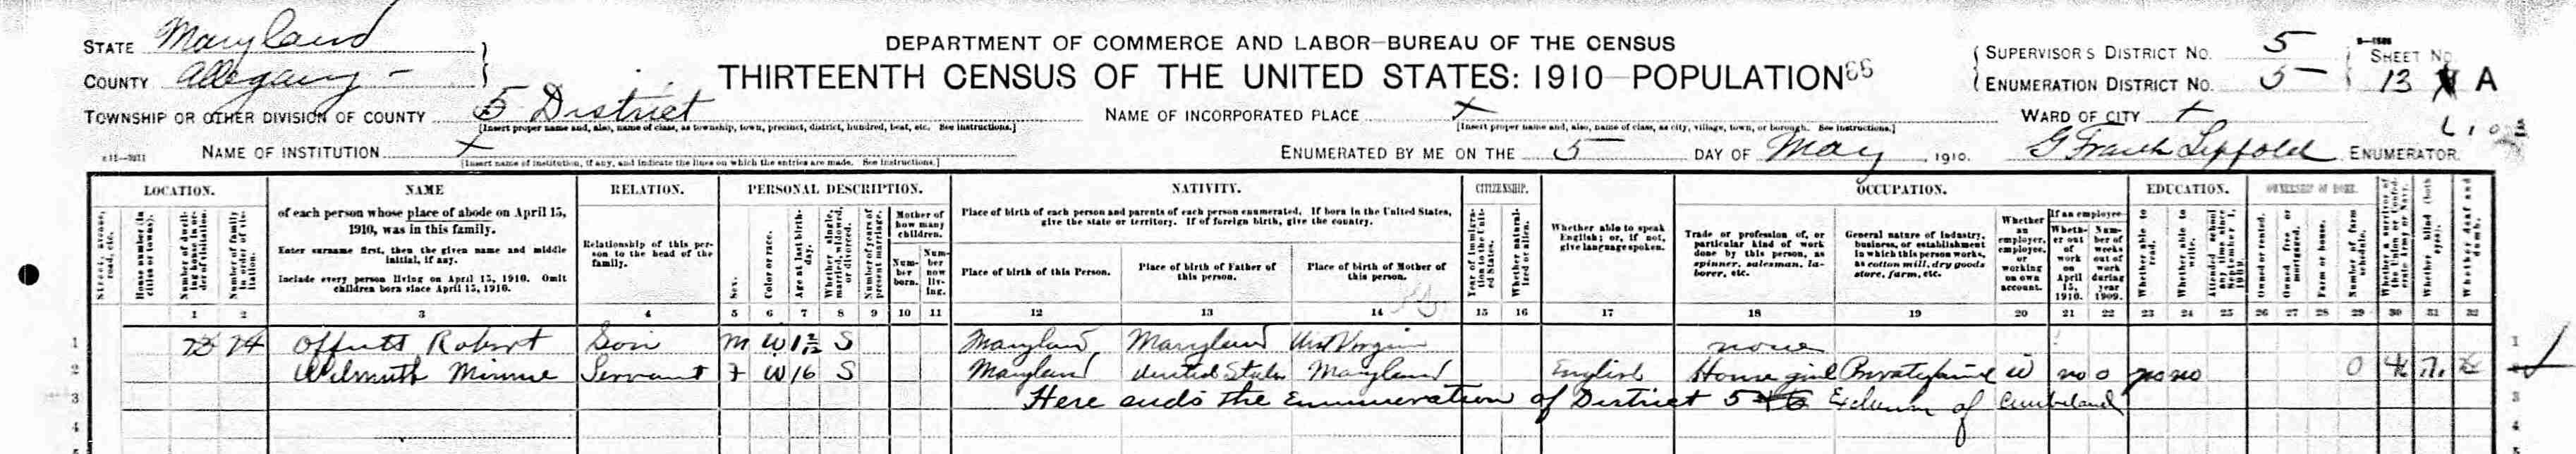 STATE Maryland
COUNTY Allegany -
TOWNSHIP OR OTHER DIVISION OF COUNTY 5 District
[Insert proper name and, also, name of class, as township, town, precinct, district, hundred, beat, etc. See instructions.]
NAME OF INSTITUTION X
[Insert name of institution, if any, and indicate the lines on which the entries are made. See instructions.]
DEPARTMENT OF COMMERCE AND LABOR—BUREAU OF THE CENSUS
THIRTEENTH CENSUS OF THE UNITED STATES: 1910—POPULATION
NAME OF INCORPORATED PLACE X
[Insert proper name and, also, name of class, as city, village, town, or borough. See instructions.]
ENUMERATED BY ME ON THE 5 DAY OF May, 1910. G Frank Lippold ENUMERATOR.
SUPERVISOR'S DISTRICT NO. 5
ENUMERATION DISTRICT NO. 5
SHEET NO.
13 A
WARD OF CITY X
LOCATION.
Street, avenue, road, etc.
House number (in cities or towns).
Number of dwelling house in order of visitation.
Number of family in order of visitation.
NAME
of each person whose place of abode on April 15, 1910, was in this family.
Enter surname first, then the given name and middle initial, if any.
Include every person living on April 15, 1910. Omit children born since April 15, 1910.
RELATION.
Relationship of this person to the head of the family.
PERSONAL DESCRIPTION.
Sex.
Color or race.
Age at last birthday.
Whether single, married, widowed, or divorced.
Number of years of present marriage.
Mother of how many children.
Number born.
Number now living.
NATIVITY.
Place of birth of each person and parents of each person enumerated. If born in the United States, give the state or territory. If of foreign birth, give the country.
Place of birth of this Person.
Place of birth of Father of this person.
Place of birth of Mother of this person.
CITIZENSHIP.
Year of immigration to the United States.
Whether naturalized or alien.
Whether able to speak English; or, if not, give language spoken.
OCCUPATION.
Trade or profession of, or particular kind of work done by this person, as spinner, salesman, laborer, etc.
General nature of industry, business, or establishment in which this person works, as cotton mill, dry goods store, farm, etc.
Whether an employer, employee, or working on own account.
If an employee—
Whether out of work on April 15, 1910.
Number of weeks out of work during year 1909.
EDUCATION.
Whether able to read.
Whether able to write.
Attended school any time since September 1, 1909.
OWNERSHIP OF HOME.
Owned or rented.
Owned free or mortgaged.
Farm or house.
Number of farm schedule.
Whether a survivor of the Union or Confederate Army or Navy.
Whether blind (both eyes).
Whether deaf and dumb.
1 2 3 4 5 6 7 8 9 10 11 12 13 14 15 16 17 18 19 20 21 22 23 24 25 26 27 28 29 30 31 32
1 73 74 Offutt Robert Son M W 1 2/12 S Maryland Maryland West Virginia none 1
2 Wilmuth Minnie Servant F W 16 S Maryland United States Maryland English House girl Private family W no 0 no no
3 Here ends the Enumeration of District 5 Exclusive of Cumberland 3
4 4